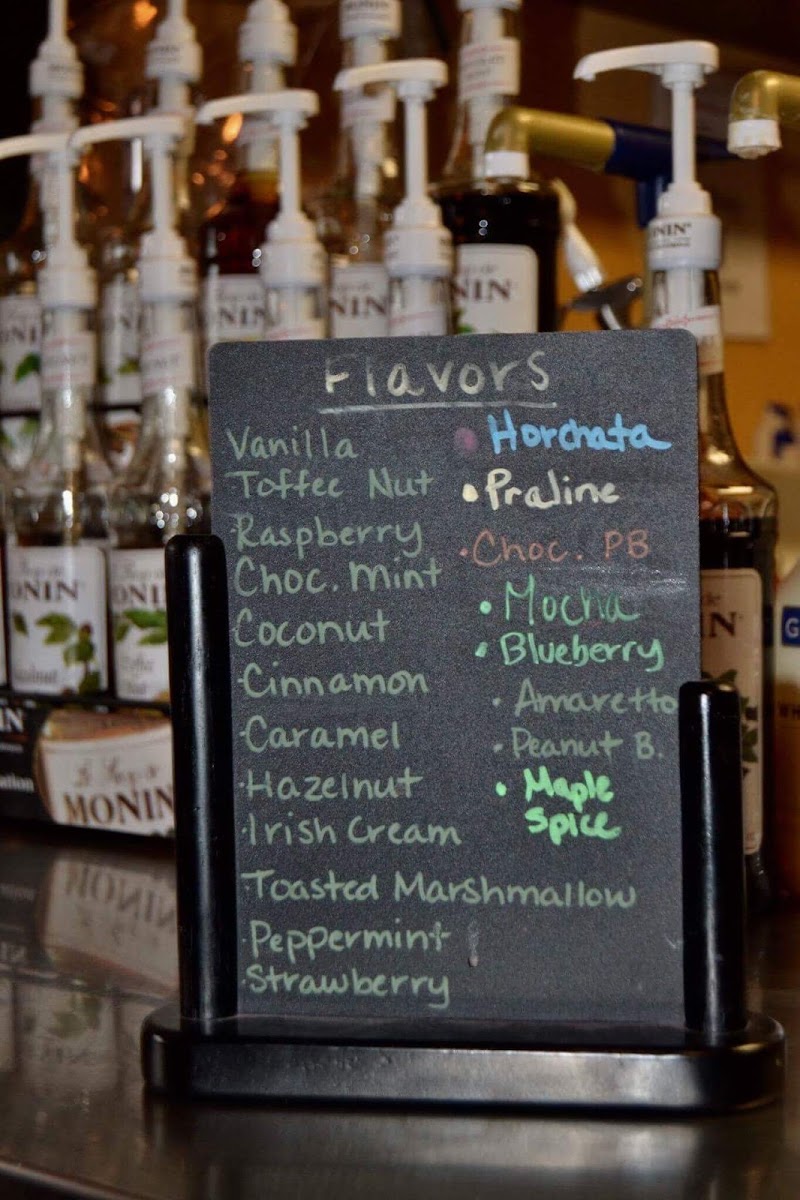 Flavors
Vanilla
Toffee Nut
Raspberry
Choc. Mint
Coconut
Cinnamon
Caramel
Hazelnut
Irish Cream
Toasted Marshmallow
Peppermint
Strawberry
Horchata
Praline
Choc. PB
Mocha
Blueberry
Amaretto
Peanut B.
Maple
Spice
MONIN